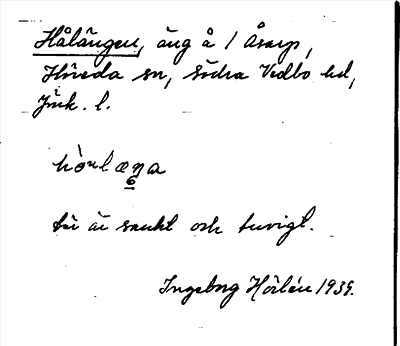 Hålängen, äng å 1 Åsarp,
Hiteda sn, Södra Vedbo hd,
Jönk. l.
hòᵘlæŋa
är sankt och tuvigt.
Ingeborg Hörlén 1939.